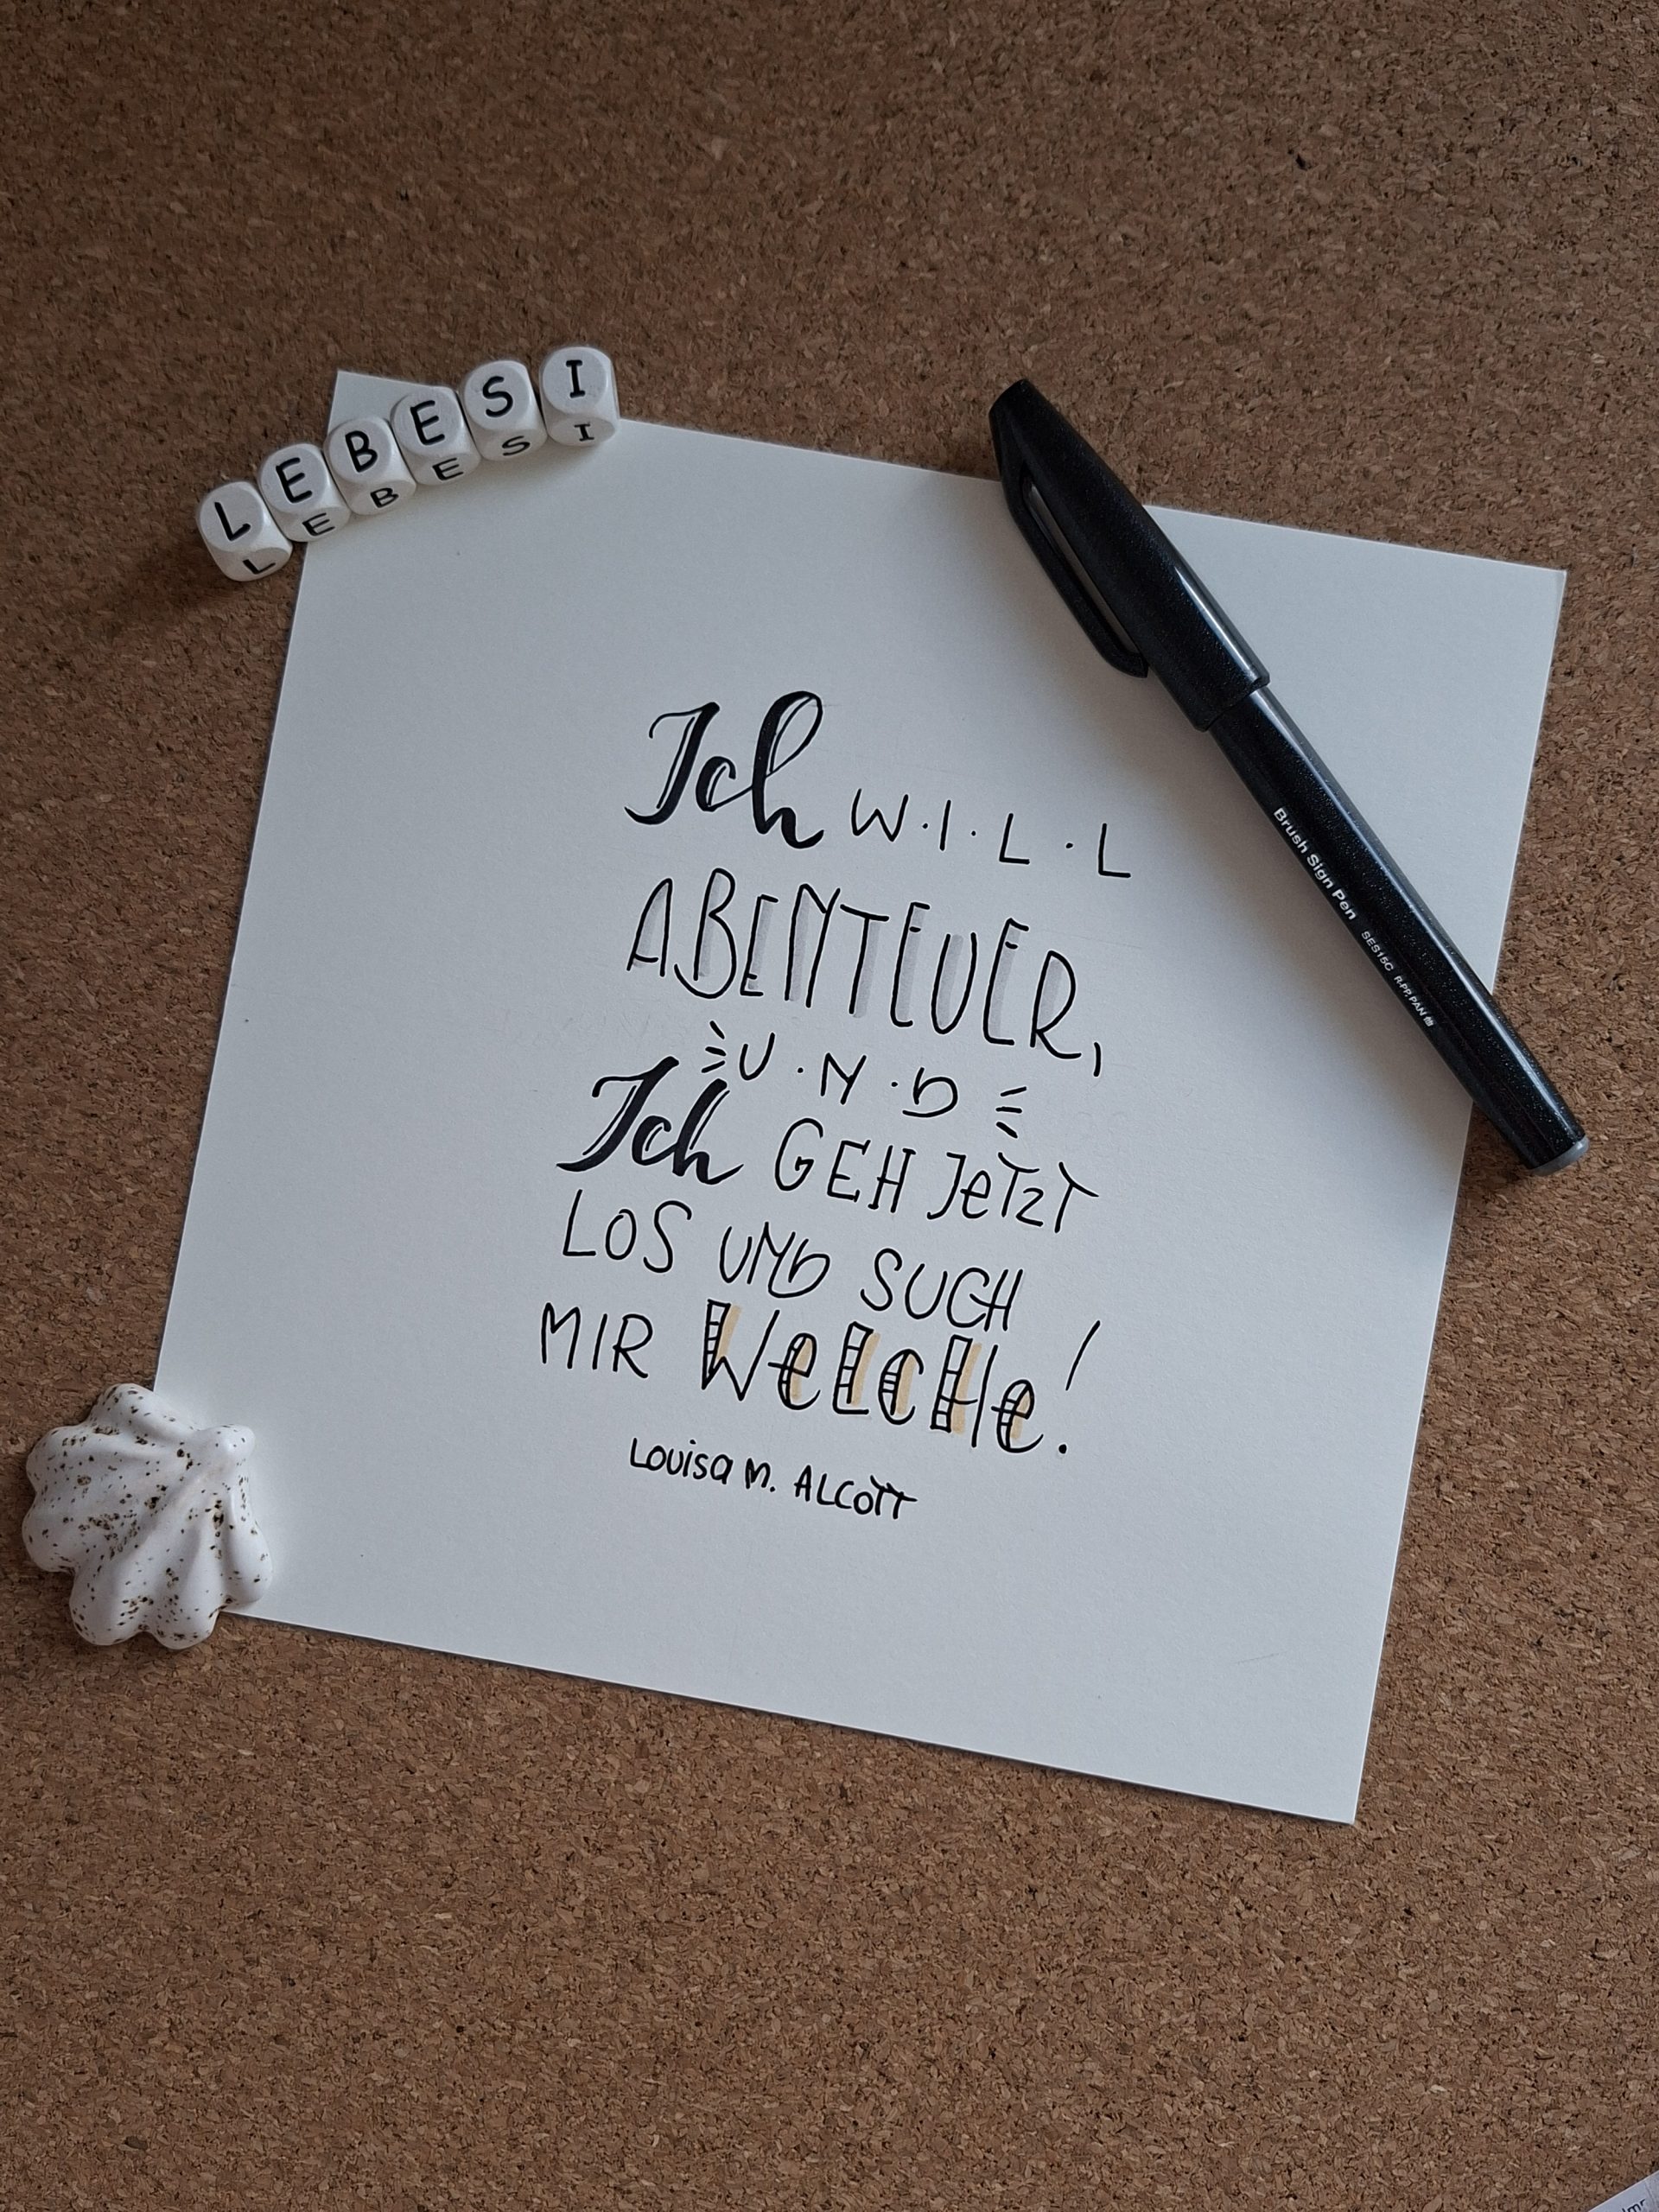 LEBESI
LEBESI
Ich W.I.L.L
ABENTEUER,
U.N.D
Ich GEH JeTZT
LOS UND SUCH
MIR WeLCHe!
Louisa M. ALCOTT
Brush Sign Pen SES15C